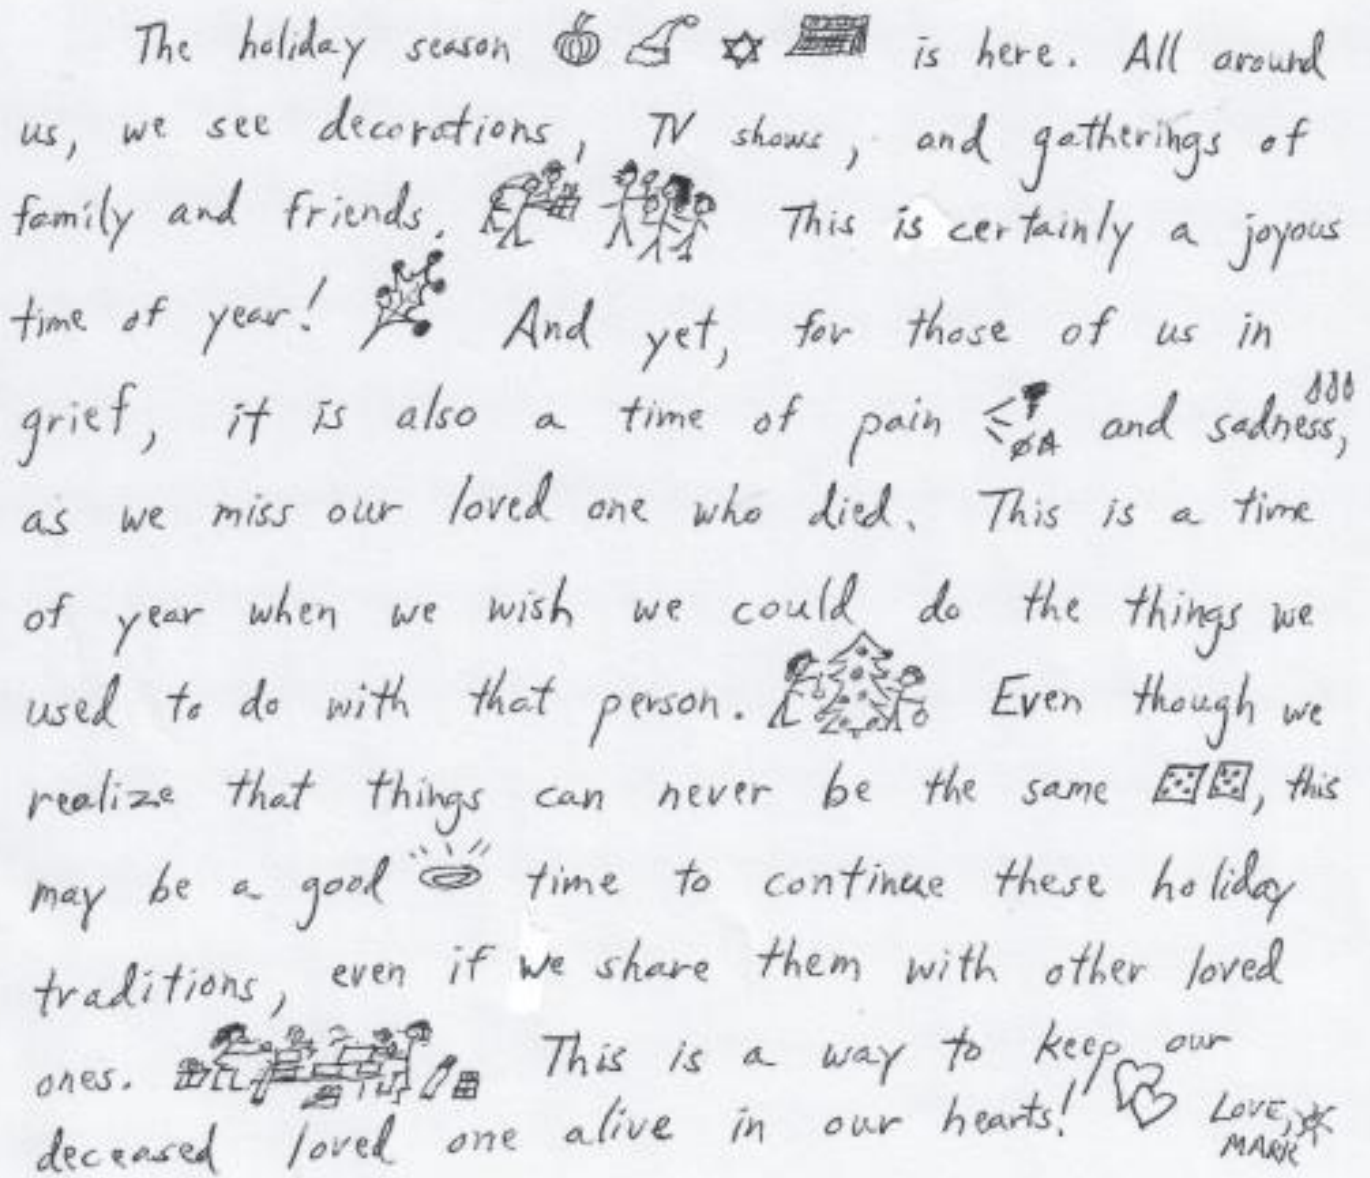 The holiday season is here. All around
us, we see decorations, TV shows, and gatherings of
family and friends. This is certainly a joyous
time of year! And yet, for those of us in
grief, it is also a time of pain and sadness,
as we miss our loved one who died. This is a time
of year when we wish we could do the things we
used to do with that person. Even though we
realize that things can never be the same, this
may be a good time to continue these holiday
traditions, even if we share them with other loved
ones. This is a way to keep our
deceased loved one alive in our hearts! LOVE,
MARK